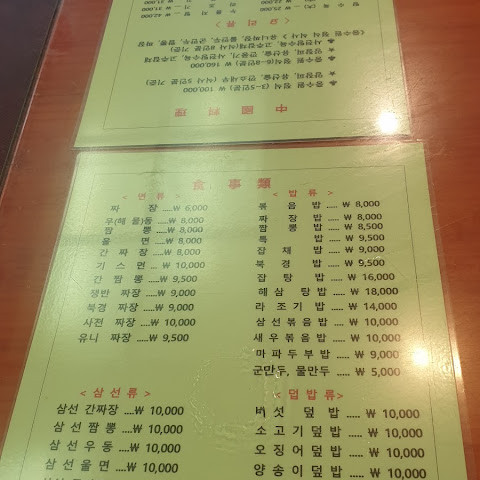 中國料理
♣ 중수원 정식 (3~5인분) ₩ 100,000
♣ 중수원 정식(6~8인분) ₩ 160,000
< 요리류 >
食事類
< 면류 >
짜 장 ....₩ 6,000
우(해물)동 ....₩ 8,000
짬 뽕 ....₩ 8,000
울 면 ....₩ 8,000
간 짜 장 ....₩ 8,500
기 스 면 ....₩ 10,000
간 짬 뽕 ....₩ 9,500
쟁반 짜장 ....₩ 9,000
북경 짜장 ....₩ 9,000
사천 짜장 ....₩ 10,000
유니 짜장 ....₩ 9,500
< 밥류 >
볶 음 밥 ..... ₩ 8,000
짜 장 밥 ..... ₩ 8,000
짬 뽕 밥 ..... ₩ 8,500
특 밥 ..... ₩ 9,500
잡 채 밥 ..... ₩ 9,000
북 경 밥 ..... ₩ 9,500
잡 탕 밥 ..... ₩ 16,000
해 삼 탕 밥 ..... ₩ 18,000
라 조 기 밥 ..... ₩ 14,000
삼 선 볶 음 밥 ..... ₩ 10,000
새 우 볶 음 밥 ..... ₩ 10,000
마 파 두 부 밥 ..... ₩ 9,000
군만두, 물만두 ..... ₩ 5,000
< 삼 선 류 >
삼선 간짜장 .... ₩ 10,000
삼 선 짬 뽕 .... ₩ 10,000
삼 선 우 동 .... ₩ 10,000
삼 선 울 면 .... ₩ 10,000
< 덮밥류 >
버 섯 덮 밥 ..... ₩ 10,000
소 고 기 덮 밥 ..... ₩ 10,000
오 징 어 덮 밥 ..... ₩ 10,000
양 송 이 덮 밥 ..... ₩ 10,000